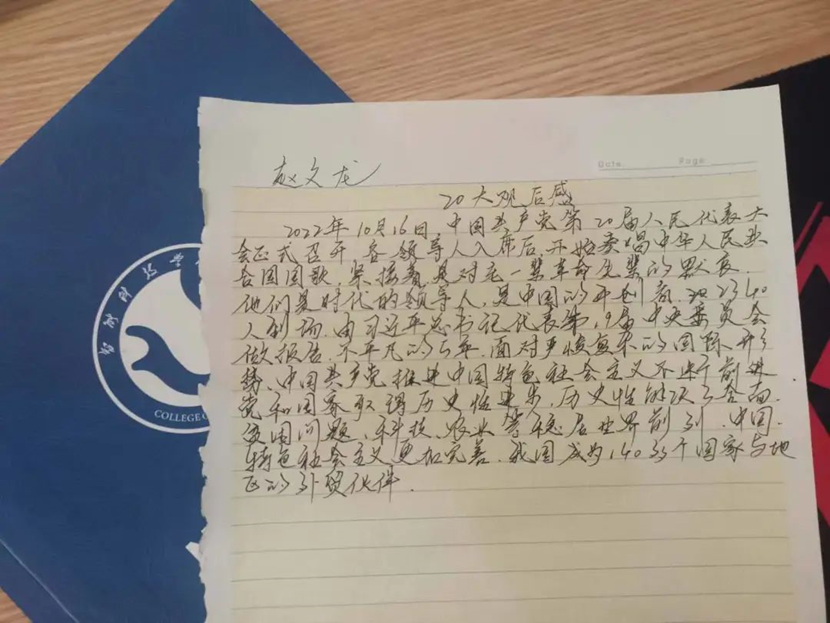 Date Page
赵文龙
20大观后感
2022年10月16日,中国共产党第20届人民代表大
会正式召开.各领导人入席后,开始奏唱中华人民共
合国国歌,紧接着,是对老一辈革命先辈的默哀.
他们是时代的领导人,是中国的开创者.2340
人到场.由习近平总书记代表第19届中央委员会
做报告.不平凡的5年.面对严峻复杂的国际形
势、中国共产党推进中国特色社会主义不断前进
党和国家取得历史性进步,历史性解决了全面
问题,科技、农业等稳居世界前列.中国
特色社会主义更加完善.我国成为140多个国家与地
区的外贸伙件.
COLLEGE